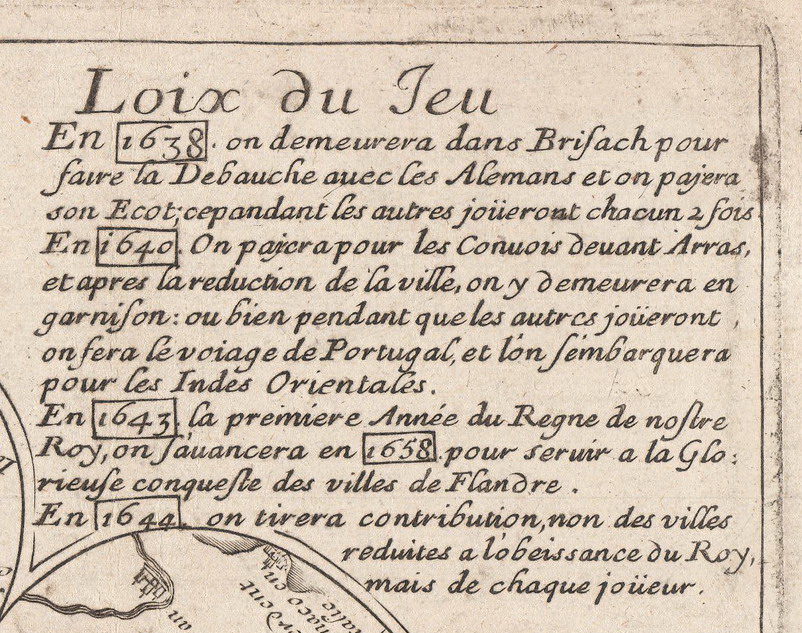 Loix du Jeu
En 1638. on demeurera dans Brisach pour
faire la Debauche avec les Alemans et on pajera
son Ecot; cepandant les autres joüeront chacun 2 fois
En 1640. On pajera pour les Conuois deuant Arras,
et apres la reduction de la ville, on y demeurera en
garnison: ou bien pendant que les autres joüeront,
on fera le voiage de Portugal, et l'on s'embarquera
pour les Indes Orientales.
En 1643. la premiere Année du Regne de nostre
Roy, on s'auancera en 1658. pour seruir a la Glo:
rieuse conqueste des villes de Flandre.
En 1644. on tirera contribution, non des villes
reduites a l'obeissance du Roy,
mais de chaque joüeur.